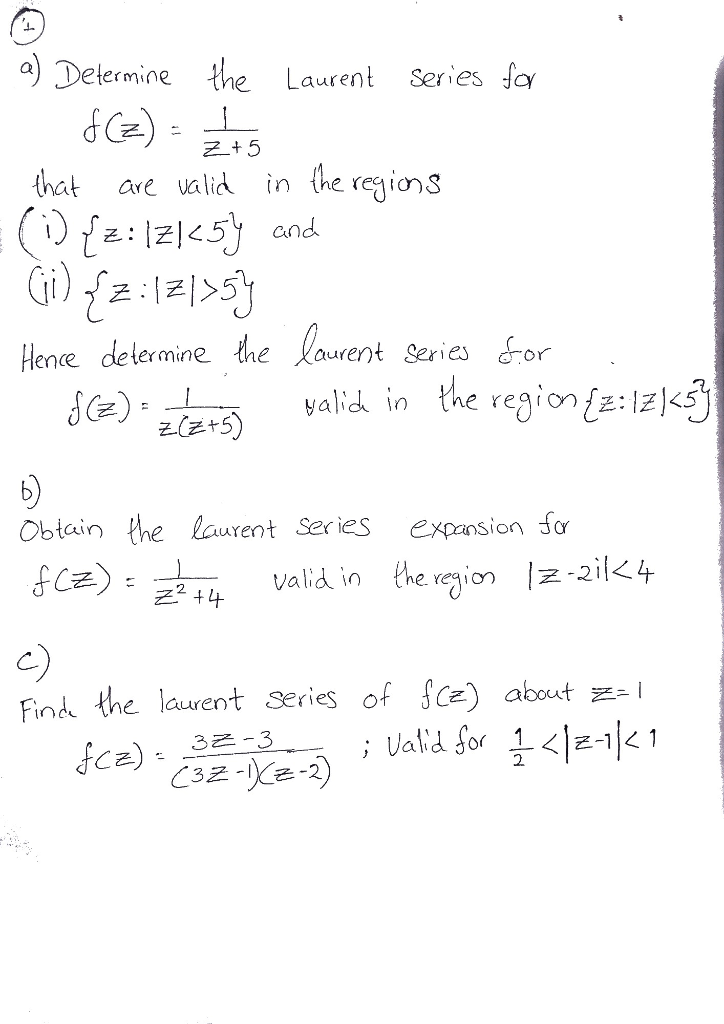 1
a) Determine the Laurent series for
f(z) = 1/(z+5)
that are valid in the regions
(i) {z: |z|<5} and
(ii) {z: |z|>5}
Hence determine the laurent series for
f(z) = 1/(z(z+5)) valid in the region {z: |z|<5}
b)
Obtain the laurent series expansion for
f(z) = 1/(z²+4) valid in the region |z-2i|<4
c)
Find the laurent series of f(z) about z=1
f(z) = (3z-3)/((3z-1)(z-2)) ; valid for 1/2 <|z-1|<1